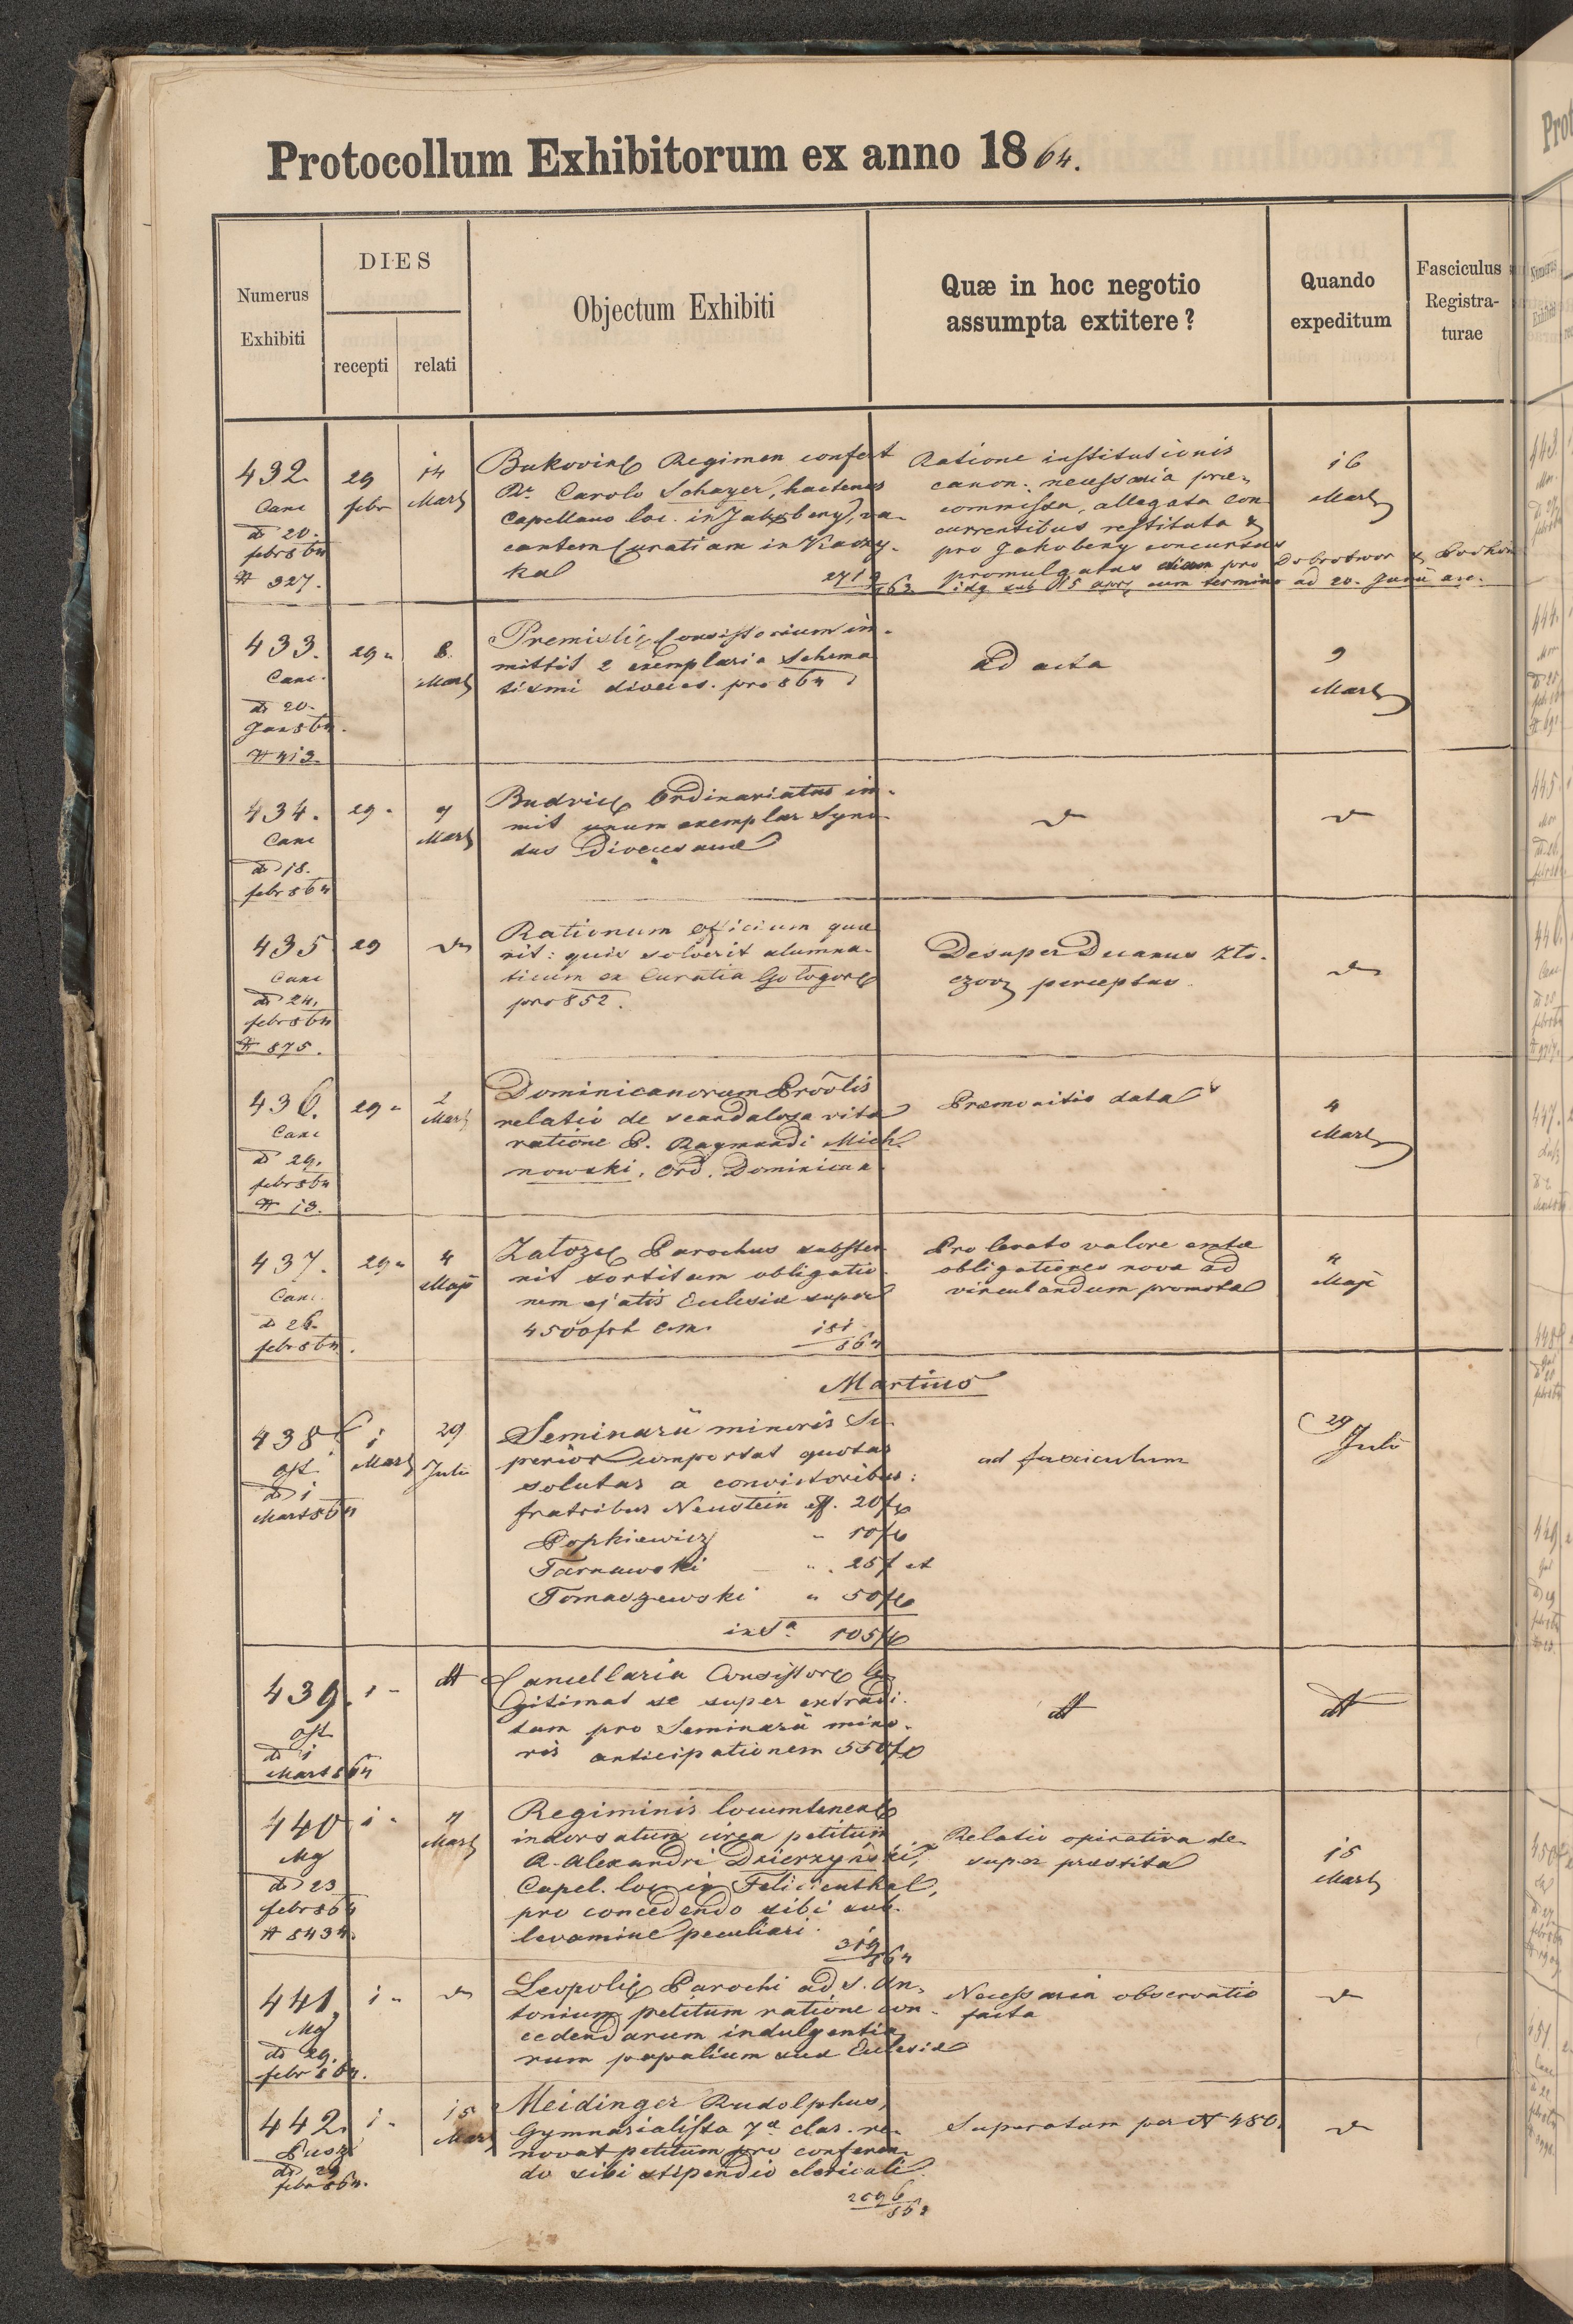 Protocollum Exhibitorum ex anno 1864.
Numerus Exhibiti
DIES
recepti
relati
Objectum Exhibiti
Quæ in hoc negotio assumpta extitere?
Quando expeditum
Fasciculus Registra-turae
432
Canc
dt 20.
febr 864
N 327.
29
febr
14
Mart
Bukovin Regimen confert
Rdo Carolo Schayer, hactenus
Capellano loc. in Jakobeny, va-
cantem Curatiam in Kaczy-
ka
2719/863
Ratione institutionis
canon. necessaria præ-
commissa, allegata con-
currentibus restituta &
pro Jakobeny concursus
promulgatus etiam pro Dobrotwor &
sub 15 cum termino ad 20. Junii a.c.
16
Mart
433.
Canc.
dt 20.
Jan 864.
N 413.
29 "
8.
Mart
Premisli Consistorium im-
mittit 2 exemplaria Schema-
tismi dioeces. pro 864
ad acta
9
Mart
434.
Canc
dt 18.
febr 864
29 "
7
Mart
Budvic Ordinariatus im-
mit unum exemplar Syno-
dus Dioecesanæ
dt
dt
435
Canc
dt 24.
febr 864
N 875.
29
dt
Rationum Officium quæ-
rit: quis solverit alumna-
ticum ex Curatia Gologor
pro 852.
Desuper Decanus Zło-
czov perceptus.
dt
436.
Canc
dt 29.
febr 864
N 13.
29 "
2
Mart
Dominicanorum Proőlis
relatio de scandalosa vita
ratione P. Raymundi Mich-
nowski, Ord. Dominican
Præmonitio data
4
Mart
437.
Canc.
dt 26.
febr 864.
29 "
4
Maji
Załoz Parochus subster-
nit sortitam obligatio-
nem ejatis Ecclesiæ super
4500 frt c.m.
151/864
Pro levato valore emtæ
obligationes novæ ad
vinculandum promotæ
4
Maji
Martius
438
ost.
dt 1
Mart 864
1
Mart
29
Julii
Seminarii minoris Su-
perior comportat quotas
solutas a convictoribus:
fratribus Neustein eff. 20 fr
Popkiewicz " 10 fr
Tarnawski " 25 f et
Tomaszewski " 50 fr
in Sa 105 fr
ad fasciculum
29
Julii
439.
ost
dt 1
Mart 864
1 "
dt
Cancellaria Consistor le-
gitimat se super extradi-
tam pro Seminarii mino-
ris anticipationem 550 fr
dt
dt
440
Mg
dt 23
febr 864
N 8434.
1 "
7
Mart
Regiminis locumtenent
indorsatum circa petitum
R. Alexandri Dzierzyński,
Capel. loc in Felicienthal,
pro concedendo sibi sub-
levamine peculiari.
319/864
Relatio opinativa de-
super præstita
15
Mart
441
Mg
dt 29.
febr 864.
1 "
dt
Leopoli Parochi ad S. An-
tonium petitum ratione con-
cedendarum indulgentia-
rum papalium suæ Ecclesiæ
Necessaria observatio
facta
dt
442.
dt 29
febr 864.
1 "
15
Mart
Meidinger Rudolphus,
Gymnasialista 7æ clas. re-
novat petitum pro conferen-
do sibi stipendio clericali.
2096/863
Superatum per N 480.
dt